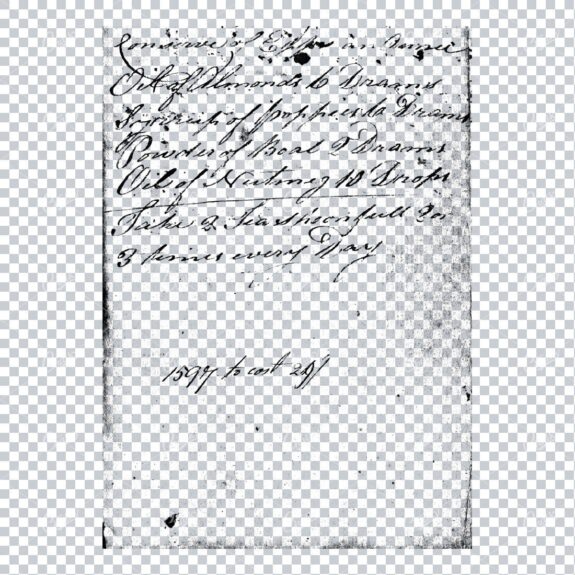 Conserve of Hipps an ounce
Oil of Almonds 6 Drams
Syrrup of poppies 6 Drams
Powder of Boal 2 Drams
Oil of Nutmeg 10 Drops
Take 2 Teaspoonfull 2 or
3 times every Day
1597 to cost